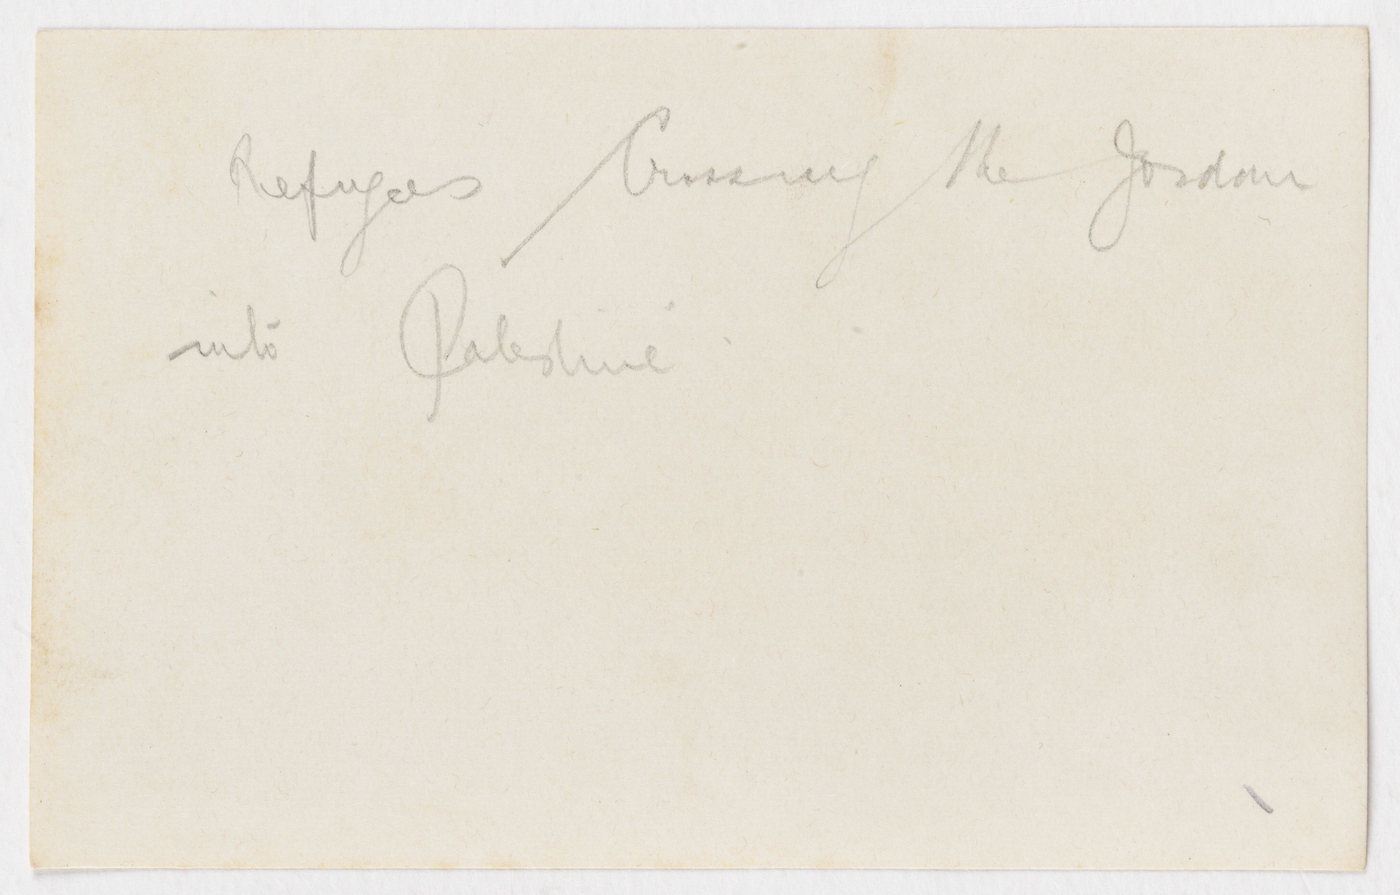 Refugees Crossing the Jordan
into Palestine